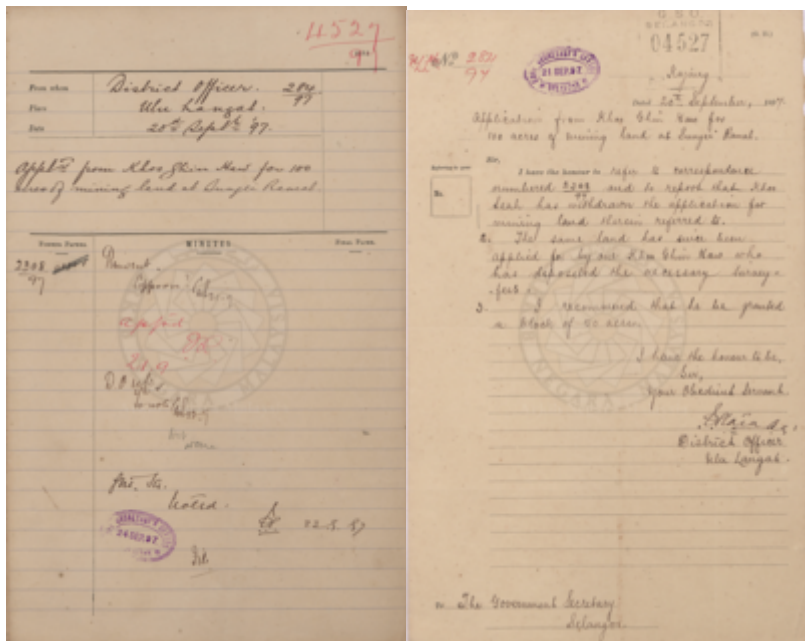 4527
97
From whom
District Officer. 284
97
Place
Ulu Langat.
Date
20th Septr '97.
Appltn from Khoo Ghin Haw for 100
acres of mining land at Sungei
FORMER PAPERS.
MINUTES
FINAL PAPER.
2308
97
Present.
Approve?
21.9
D.O.
to note
Noted.
SECRETARY'S OFFICE
24 SEP. 97
SELANGOR
04527
No 284
97
SECRETARY'S OFFICE
21 SEP. 97
Kajang
20th September, 1897.
Application from Khoo Ghin Haw for
100 acres of mining land at Sungei
Sir,
I have the honour to refer to correspondence
numbered 2308 and to report that Khoo
97
Seah has withdrawn the application for
mining land therein referred to.
2. The same land has since been
applied for by one Khoo Ghin Haw who
has deposited the necessary survey-
fees.
3. I recommend that he be granted
a block of 50 acres.
I have the honour to be,
Sir,
Your Obedient Servant.
District Officer
Ulu Langat.
The Government Secretary
Selangor.